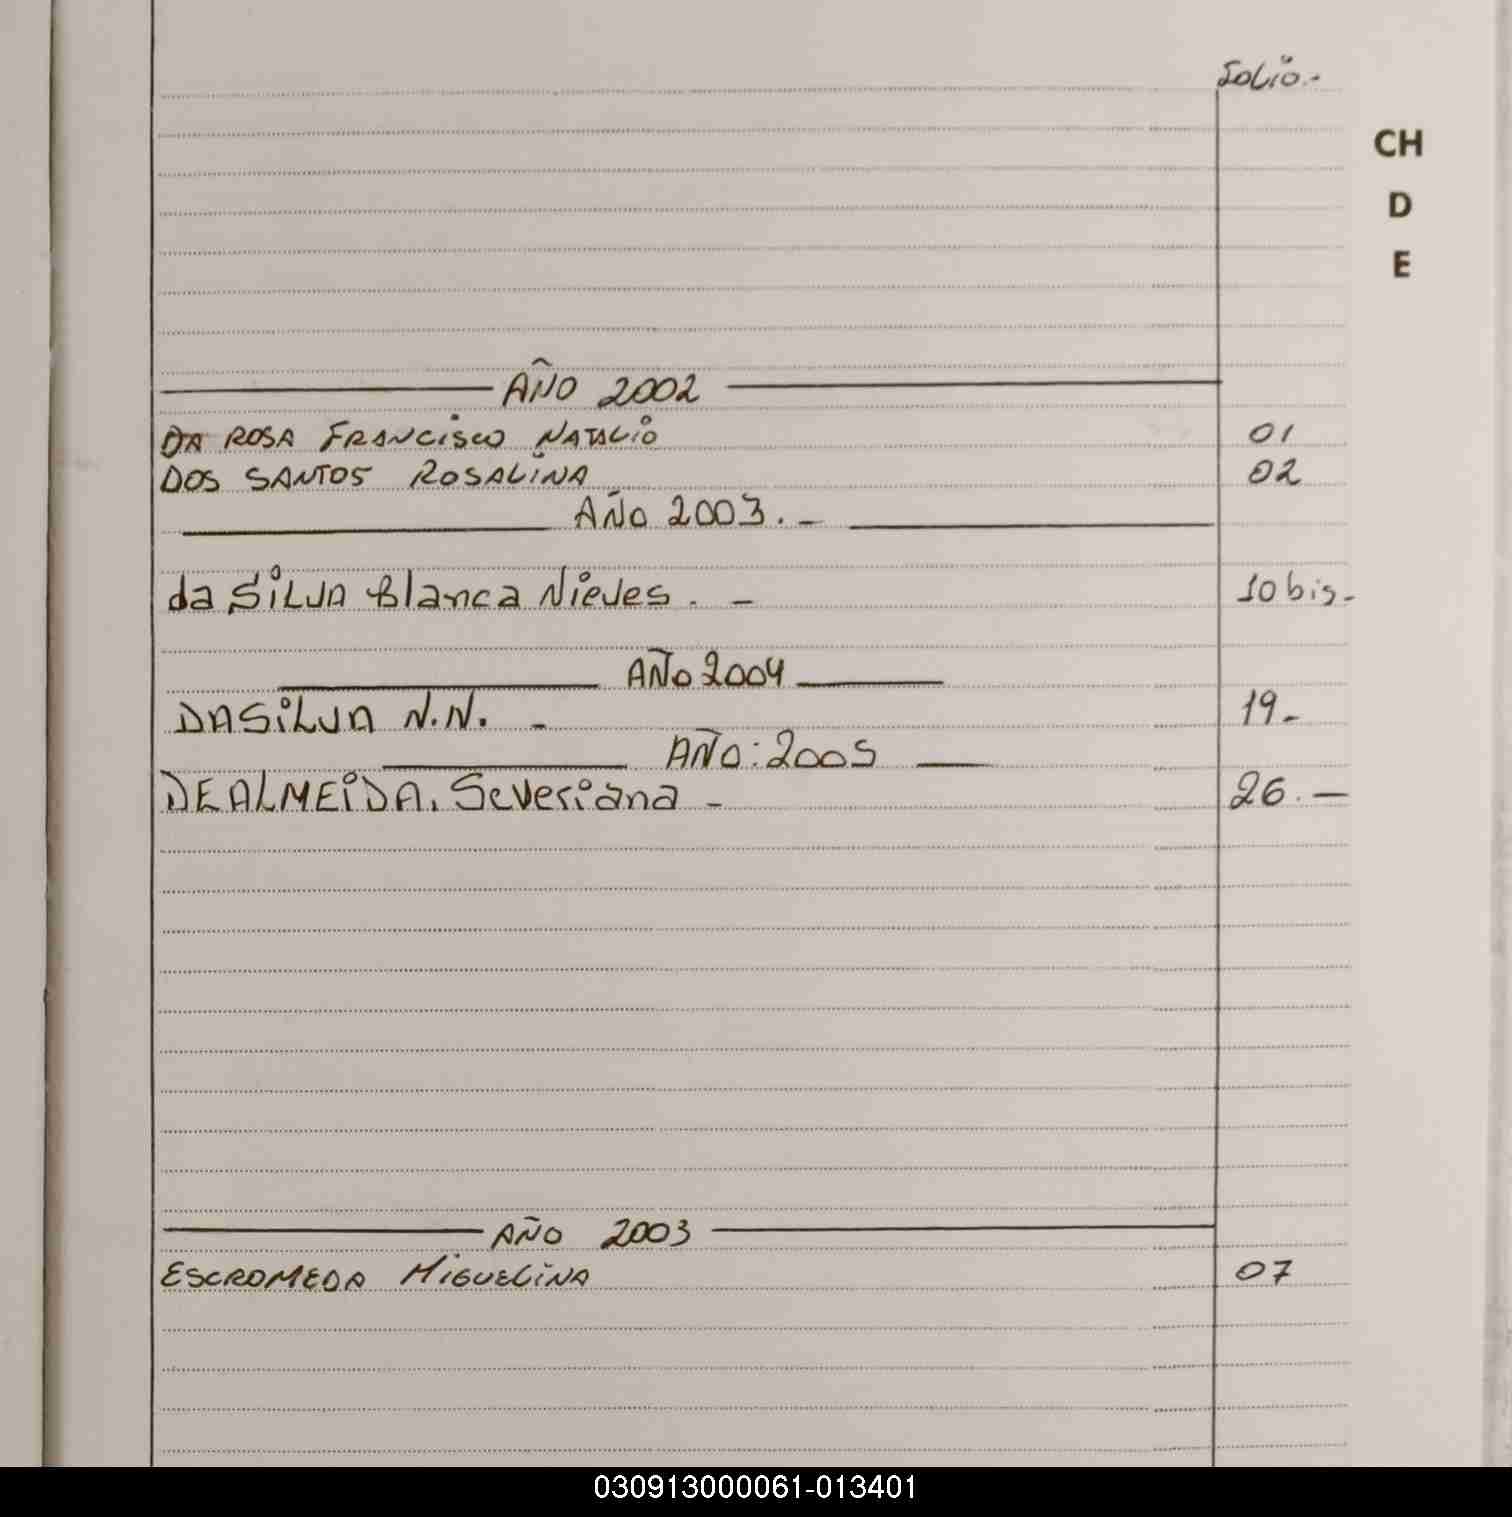 Folio.-
CH
D
E
AÑO 2002
DA ROSA FRANCISCO NATALIO 01
DOS SANTOS ROSALINA 02
AÑO 2003. -
da SiLVA Blanca Nieves. - 10 bis-
AÑO 2004
DASiLVA N.N. - 19-
AÑO: 2005
DEALMEIDA. Severiana - 26. -
AÑO 2003
ESCROMEDA MIGUELINA 07
030913000061-013401